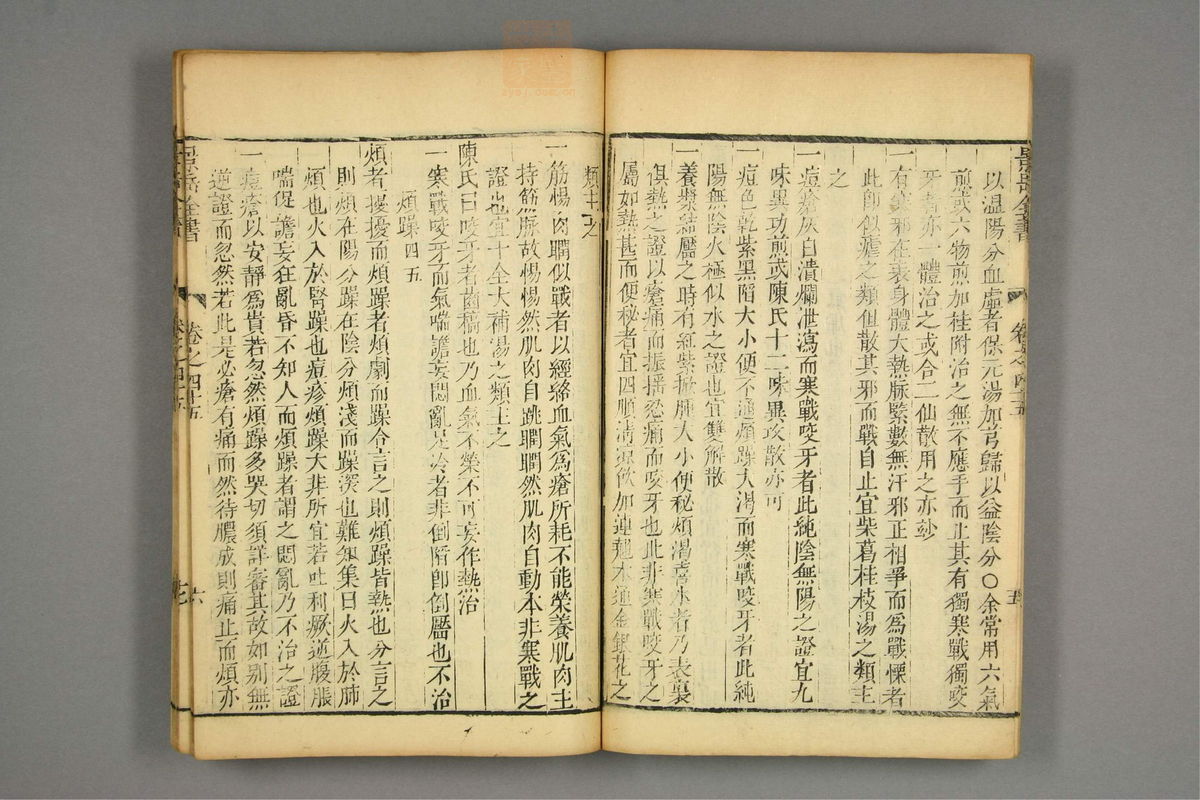 以温陽分血虛者保元湯加芎歸以益陰分〇余常用六氣
煎或六物煎加桂附治之無不應手而止其有獨寒戰獨咬
牙者亦一體治之或合二仙散用之亦妙
一有寒邪在表身體大熱脈緊數無汗邪正相爭而爲戰慄者
此卽似瘧之類但散其邪而戰自止宜柴葛桂枝湯之類主
之
一痘瘡灰白潰爛泄瀉而寒戰咬牙者此純陰無陽之證宜九
味異功煎或陳氏十二味異攻散亦可
一痘色乾紫黑陷大小便不通煩躁大渴而寒戰咬牙者此純
陽無陰火極似水之證也宜雙解散
一養漿結靨之時有紅紫掀腫大小便秘煩渴喜水者乃表裏
俱熱之證以瘡痛而振搖忍痛而咬牙也此非寒戰咬牙之
屬如熱甚而便秘者宜四順清涼飲加連翹木通金銀花之
類主之
一筋惕肉瞤似戰者以經絡血氣爲瘡所耗不能榮養肌肉主
持筋脈故惕惕然肌肉自跳瞤瞤然肌肉自動本非寒戰之
證也宜十全大補湯之類主之
陳氏曰咬牙者齒槁也乃血氣不榮不可妄作熱治
一寒戰咬牙而氣喘譫妄悶亂足冷者非倒陷卽倒靨也不治
煩躁四五
煩者擾擾而煩躁者煩劇而躁合言之則煩躁皆熱也分言之
則煩在陽分躁在陰分煩淺而躁深也難知集曰火入於肺
煩也火入於腎躁也痘疹煩躁大非所宜若吐利厥逆腹脹
喘促譫妄狂亂昏不知人而煩躁者謂之悶亂乃不治之證
一痘瘡以安靜爲貴若忽然煩躁多哭切須詳審其故如别無
逆證而忽然若此是必瘡有痛而然待膿成則痛止而煩亦
景岳全書
卷之四十五
六